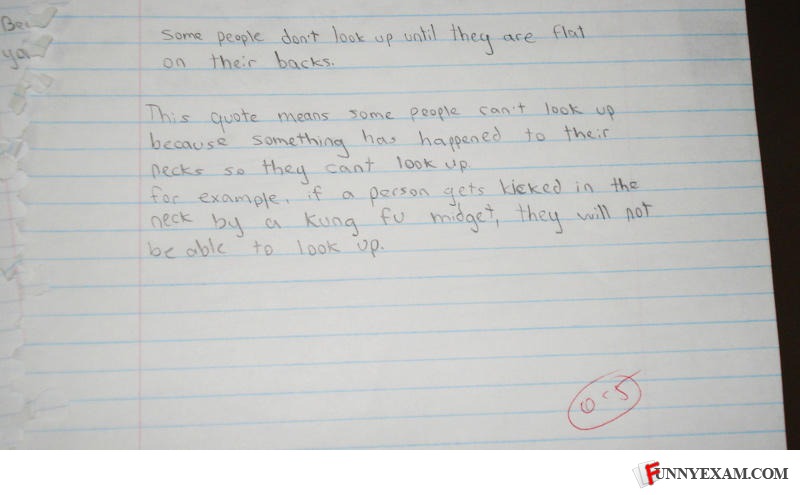 Bei
ya
Some people don't look up until they are flat
on their backs.
This quote means some people can't look up
because something has happened to their
necks so they cant look up.
for example, if a person gets kicked in the
neck by a kung fu midget, they will not
be able to look up.
0.5
FUNNYEXAM.COM